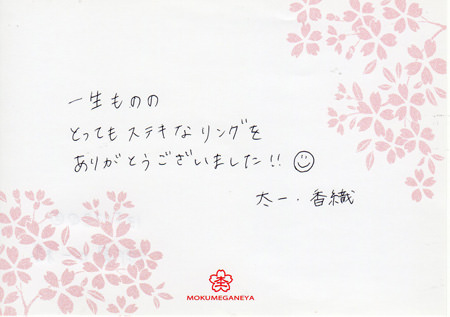 一生ものの
とってもステキなリングを
ありがとうございました!!
太一・香織
MOKUMEGANEYA